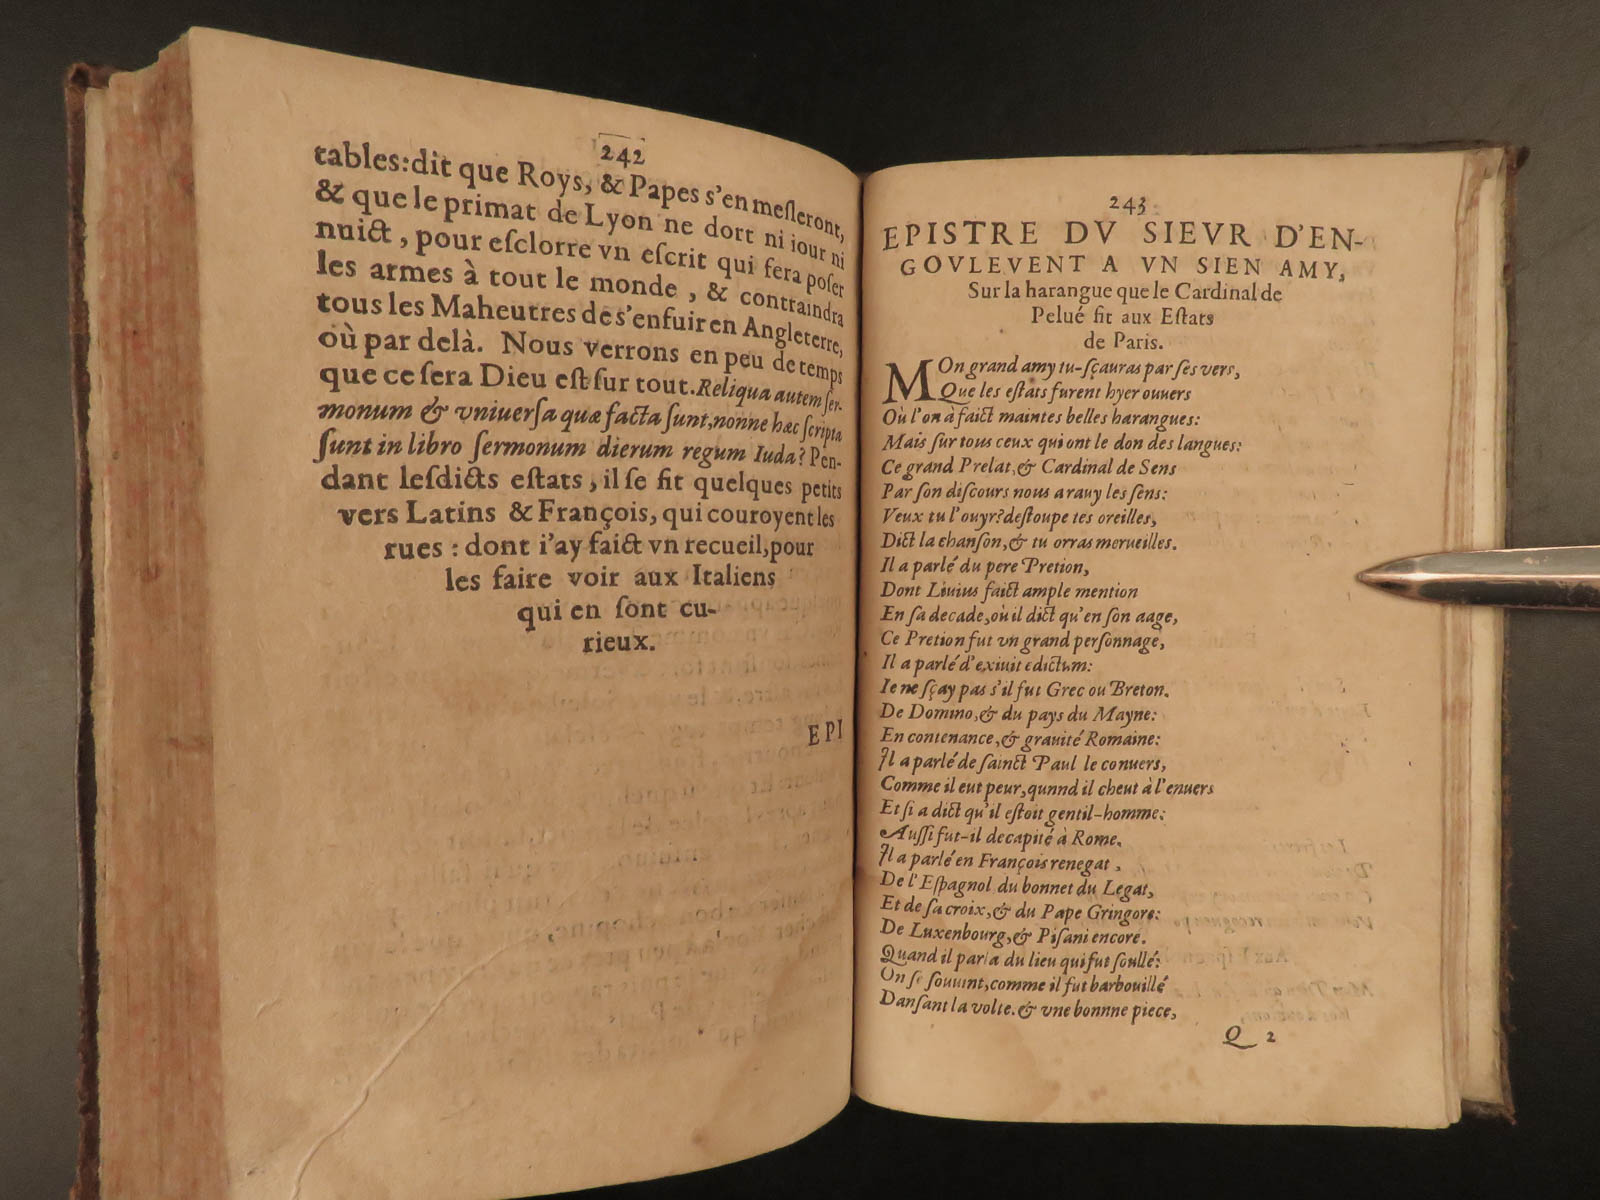 242
tables:dit que Roys, & Papes s'en meſleront,
& que le primat de Lyon ne dort ni iour ni
nuict, pour eſclorre vn eſcrit qui fera poſer
les armes à tout le monde, & contraindra
tous les Maheutres de s'enfuir en Angleterre,
où par delà. Nous verrons en peu de temps
que ce ſera Dieu eſt ſur tout. Reliqua autem ſer-
monum & vniuerſa quæ facta ſunt, nonne hæc ſcripta
ſunt in libro ſermonum dierum regum Iuda? Pen-
dant leſdicts eſtats, il ſe fit quelques petits
vers Latins & François, qui couroyent les
rues: dont i'ay faict vn recueil, pour
les faire voir aux Italiens
qui en ſont cu-
rieux.
EPI
243
EPISTRE DV SIEVR D'EN-
GOVLEVENT A VN SIEN AMY,
Sur la harangue que le Cardinal de
Pelué fit aux Eſtats
de Paris.
MOn grand amy tu-ſçauras par ſes vers,
Que les eſtats furent hyer ouuers
Où l'on à faict maintes belles harangues:
Mais ſur tous ceux qui ont le don des langues:
Ce grand Prelat, & Cardinal de Sens
Par ſon diſcours nous a rauy les ſens:
Veux tu l'ouyr? deſtoupe tes oreilles,
Dict la chanſon, & tu orras merueilles.
Il a parlé du pere Pretion,
Dont Liuius faict ample mention
En ſa decade, où il dict qu'en ſon aage,
Ce Pretion fut vn grand perſonnage,
Il a parlé d'exiuit edictum:
Ie ne ſçay pas s'il fut Grec ou Breton.
De Domino, & du pays du Mayne:
En contenance, & grauité Romaine:
Il a parlé de ſainct Paul le conuers,
Comme il eut peur, qunnd il cheut à l'enuers
Et ſi a dict qu'il eſtoit gentil-homme:
Auſſi fut-il decapité à Rome.
Il a parlé en François renegat,
De l'Eſpagnol du bonnet du Legat,
Et de ſa croix, & du Pape Gringore:
De Luxenbourg, & Piſani encore.
Quand il parla du lieu qui fut ſoullé:
On ſe ſouuint, comme il fut barbouillé
Danſant la volte. & vne bonnne piece,
Q 2